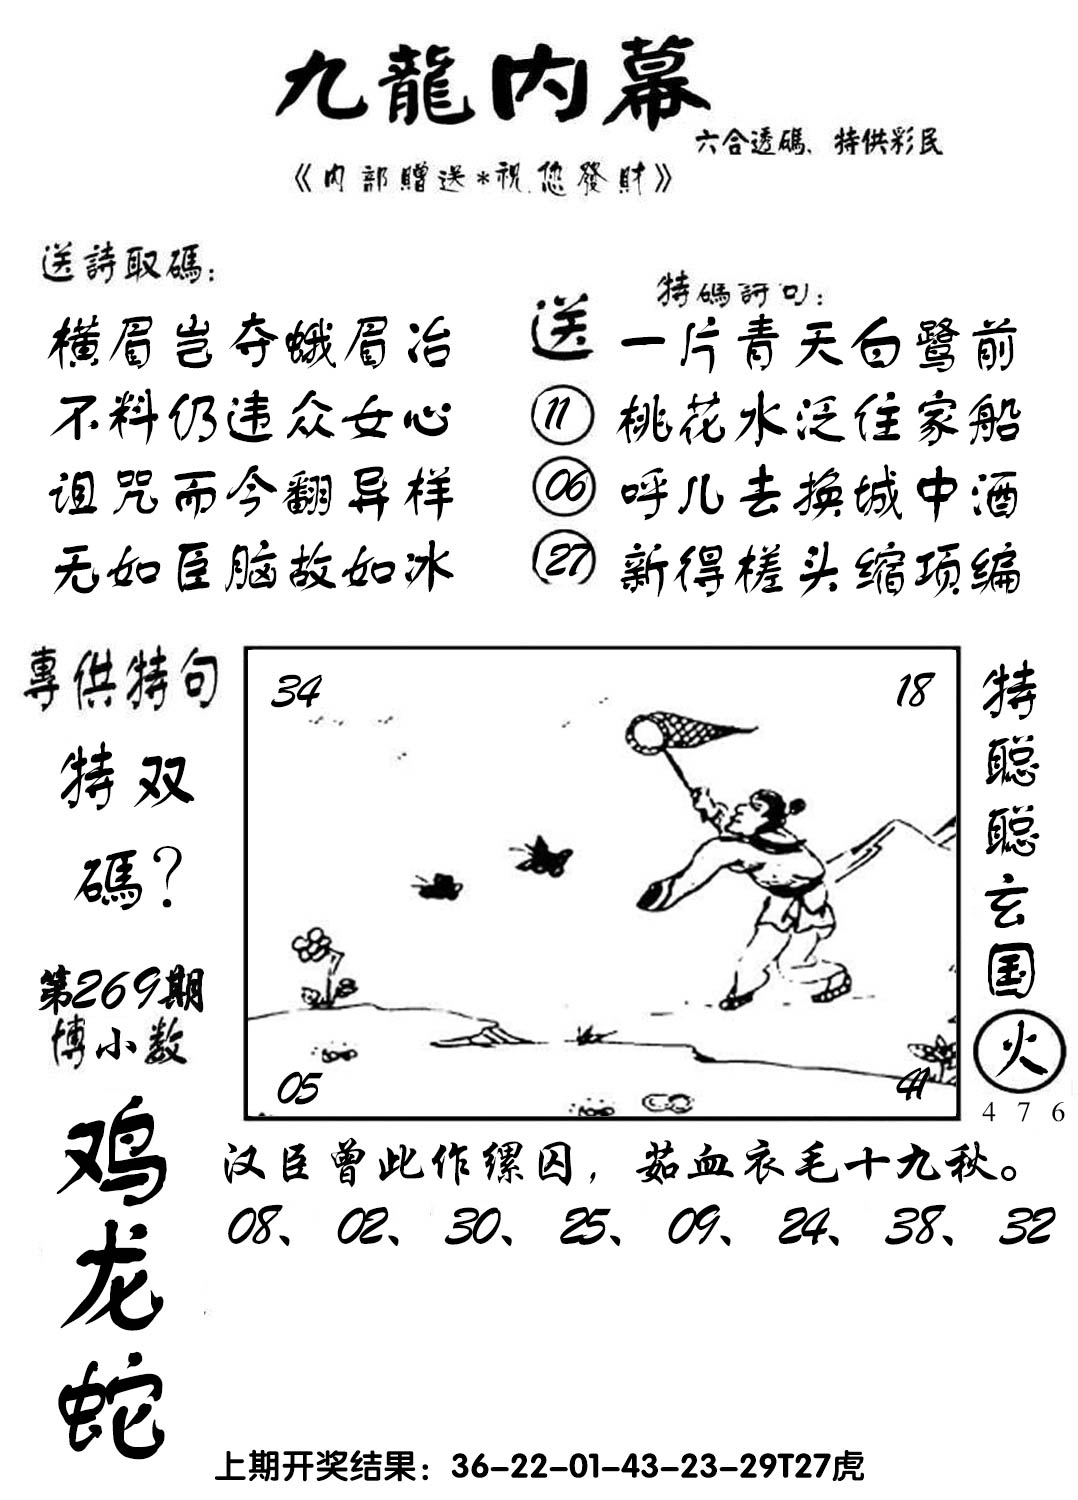 九龍内幕
六合透碼、特供彩民
《内部贈送*祝您發財》
送詩取碼：
横眉岂夺蛾眉冶
不料仍违众女心
诅咒而今翻异样
无如臣脑故如冰
送
11
06
27
特碼詩句：
一片青天白鹭前
桃花水泛住家船
呼儿去换城中酒
新得槎头缩项编
專供特句
特双
碼？
第269期
博小数
鸡
龙
蛇
34
18
05
41
特
聪
聪
玄
国
火
4 7 6
汉臣曾此作缧囚，茹血衣毛十九秋。
08、02、30、25、09、24、38、32
上期开奖结果：36-22-01-43-23-29T27虎